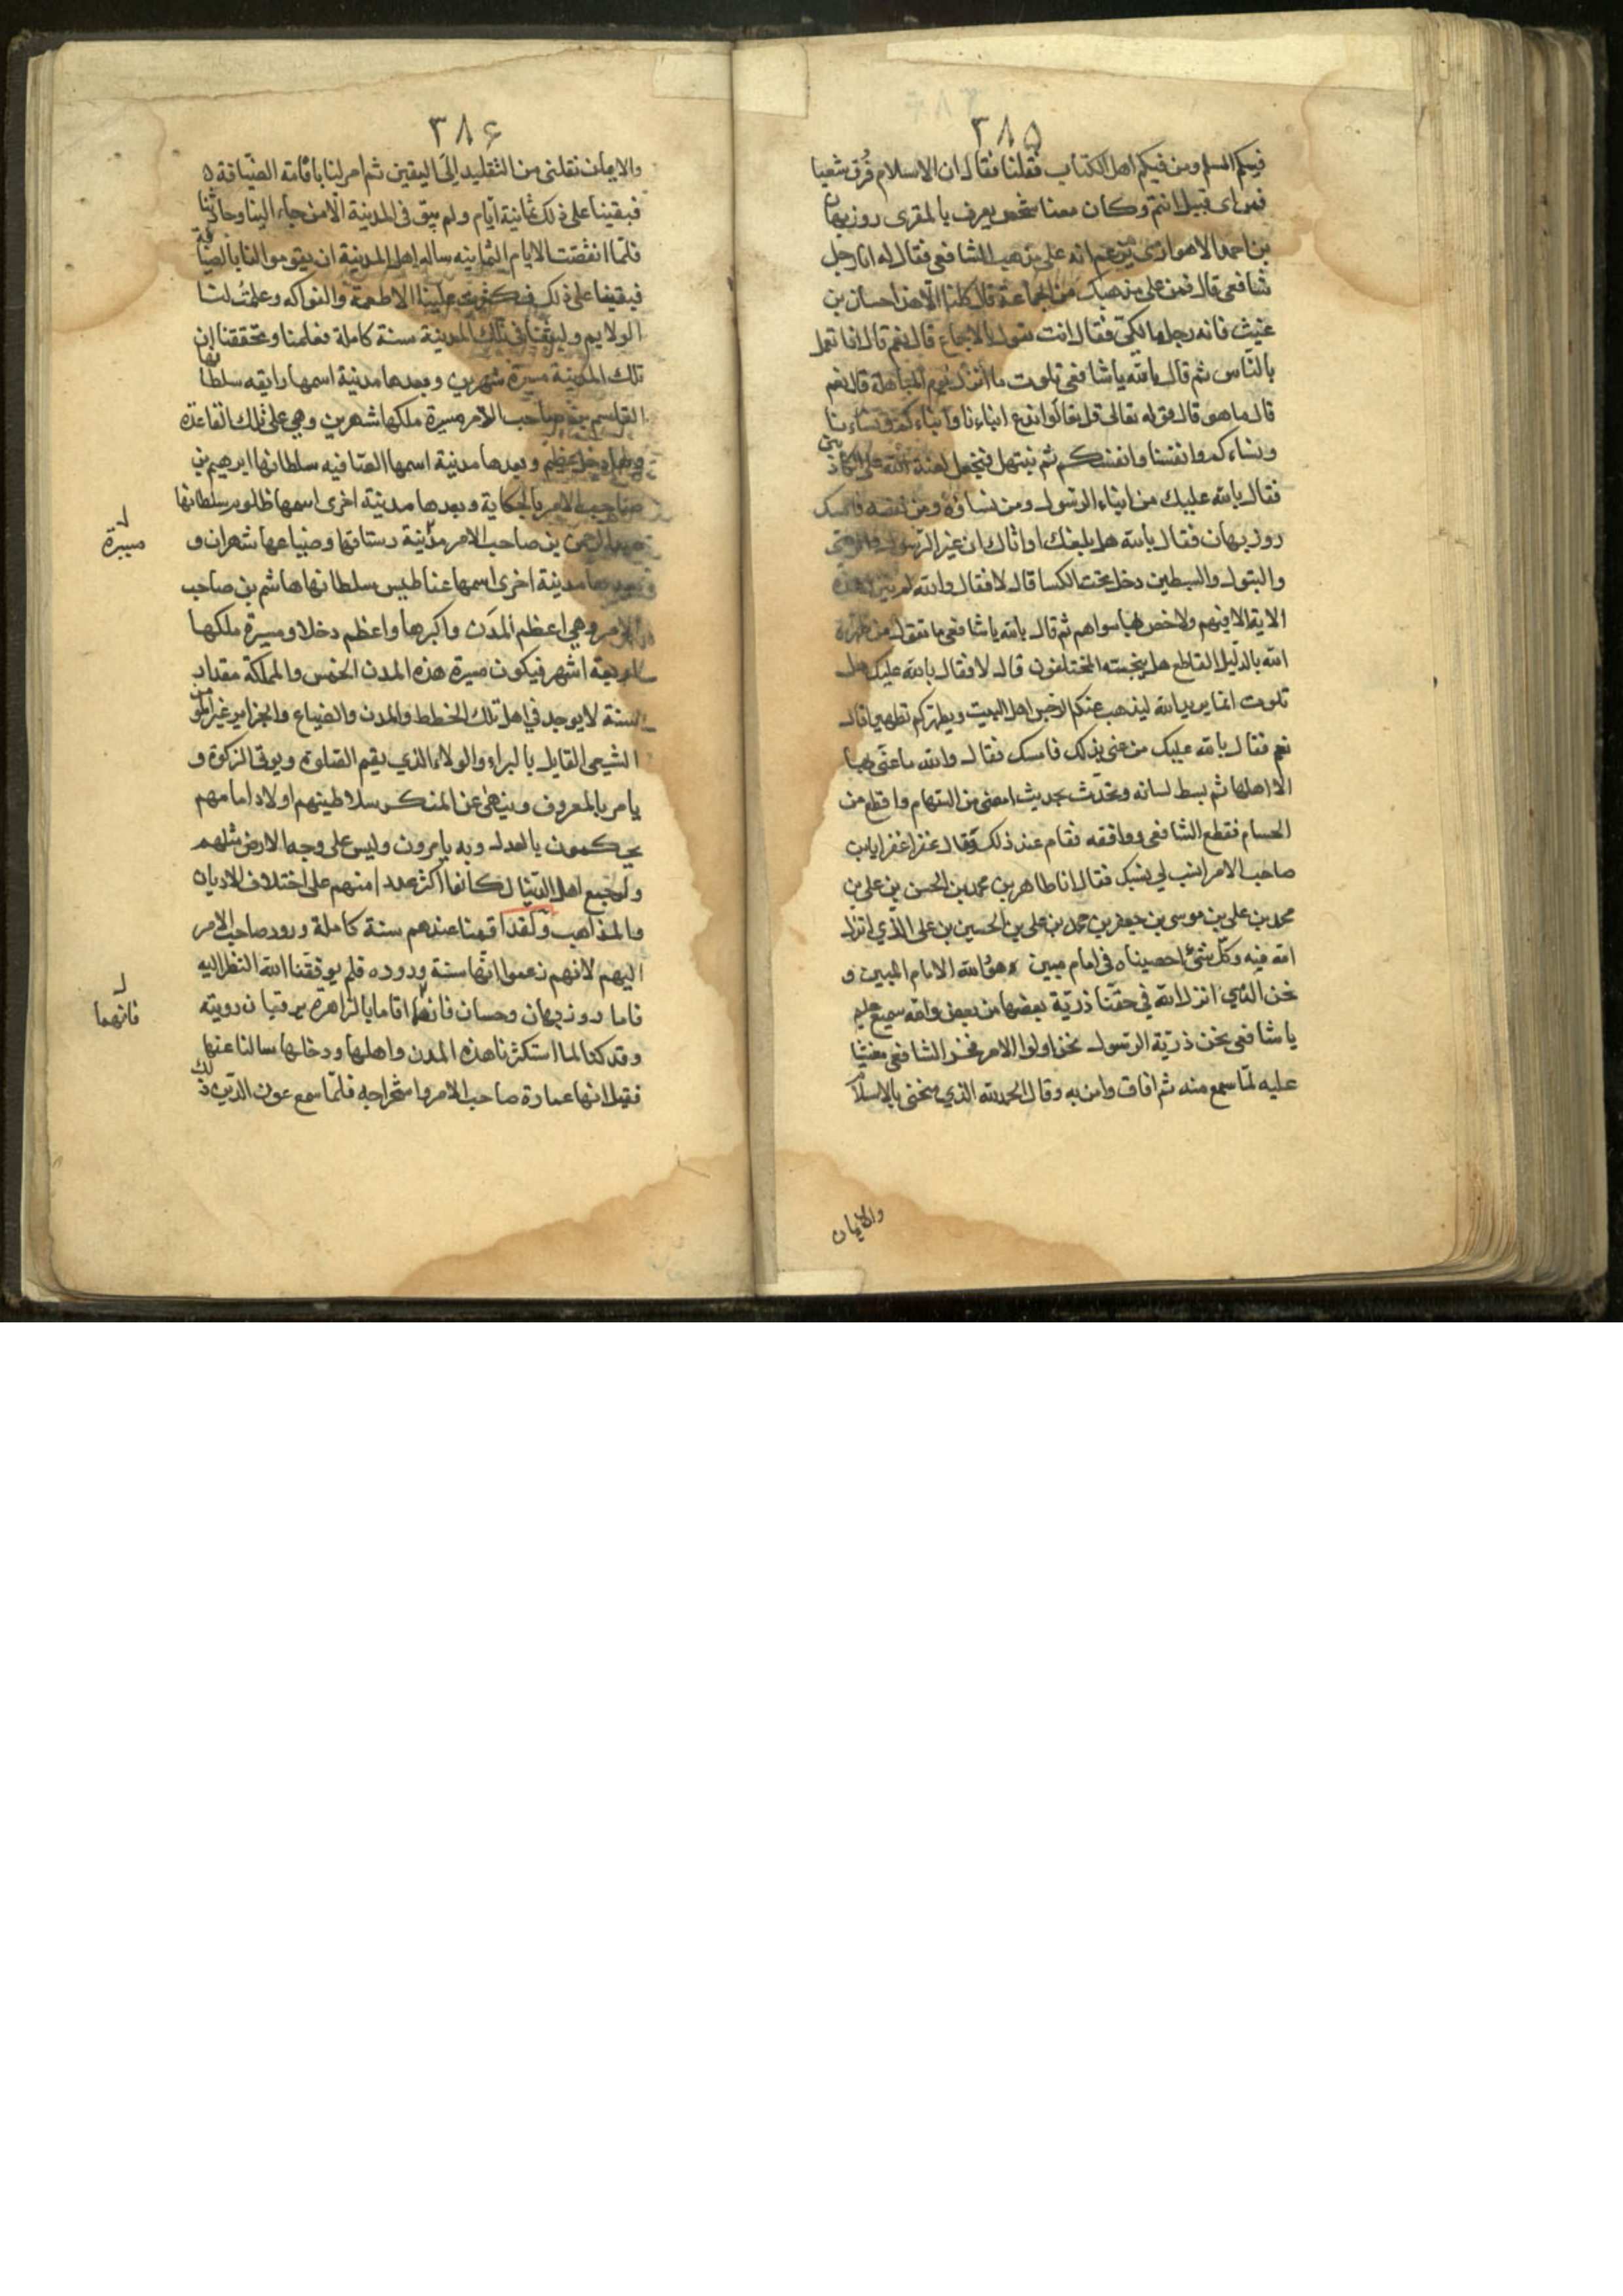 ٣٨۵
فيكم المسلم ومن فيكم اهل الكتاب فقلنا فقال ان الاسلام فُرق شعبا
فمن اى قبيل انتم وكان معنا شخص يعرف بالمقرى روزبهان
بن احمد الاهوازى يزعم انه على مذهب الشافعى فقال له انا رجل
شافعى قال فمن على مذهبك من الجماعة قال كلنا الا هذا حسان بن
غيث فانه رجل مالكى فقال انت تقول بالاجماع قال نعم قال اذا تعمل
بالقياس ثم قال بالله يا شافعى تلوت ما انزل يوم المباهلة قال نعم
قال ما هو قال قوله تعالى قل تعالوا ندع ابناءنا وابناءكم ونساءنا
ونساءكم وانفسنا وانفسكم ثم نبتهل فنجعل لعنة الله على الكاذبين
فقال بالله عليك من ابناء الرسول ومن نساؤه ومن نفسه فامسك
روزبهان فقال بالله هل بلغك او اتاك ان غير الرسول والوصى
والبتول والسبطين دخل تحت الكسا قال لا فقال والله لم تنزل هذه
الاية الا فيهم ولا خص بها سواهم ثم قال بالله يا شافعى ما تقول من طهره
الله بالدليل القاطع هل ينجسه المختلفون قال لا فقال بالله عليك هل
تلوت انما يريد الله ليذهب عنكم الرجس اهل البيت ويطهركم تطهيرا قال
نعم فقال بالله عليك من عنى بذلك فامسك فقال والله ما عنى بها
الا اهلها ثم بسط لسانه وتحدّث بحديث امضى من السهام واقطع من
الحسام فقطع الشافعى ووافقه فقام عند ذلك وقال عفرا عفرا يابن
صاحب الامر انسب لي نسبك فقال انا طاهر بن محمد بن الحسن بن على بن
محمد بن على بن موسى بن جعفر بن محمد بن على بن الحسين بن على الذي انزل
الله فيه وكل شئ احصيناه فى امام مبين هو والله الامام المبين و
نحن الذي انزل الله في حقنا ذرّية بعضها من بعض والله سميع عليم
يا شافعى نحن ذرّية الرسول نحن اولوا الامر فخر الشافعى مغشيا
عليه لمّا سمع منه ثم افاق وامن به وقال الحمدلله الذي منحنى بالاسلام
والايمان
٣٨۶
والايمان نقلنى من التقليد إلى اليقين ثم امر لنا باقامة الضّيافة
فبقينا على ذلك ثمانية ايّام ولم يبق فى المدينة الا من جاء الينا وحادثنا
فلمّا انقضت الايام الثمانيه ساله اهل المدينة ان يقوموا لنا بالضيافة
ففتح لهم فى ذلك فكثرت علينا الاطعمة والفواكه وعملت لنا
الولايم ولبثنا فى تلك المدينة سنة كاملة فعلمنا وتحققنا ان
تلك المدينة مسيرة شهرين وبعدها مدينة اسمها رايقه سلطانها
القاسم بن صاحب الامر مسيرة ملكها شهرين وهي على تلك القاعدة
ولها دخل عظيم وبعدها مدينة اسمها الصّافيه سلطانها ابرهيم بن
صاحب الامر بالحكاية وبعدها مدينة اخرى اسمها ظلوم سلطانها
عبد الرحمن بن صاحب الامر مدينة رستاقها وضياعها شهران و
وبعدها مدينة اخرى اسمها عناطيس سلطانها هاشم بن صاحب
الامر وهي اعظم المدَن واكبرها واعظم دخلا ومسيرة ملكها
اربعة اشهر فيكون مسيرة هذه المدن الخمس والمملكة مقدار
السنة لا يوجد في اهل تلك الخطط والمدن والضياع والجزاير غير المؤمن
الشيعى القايل بالبراء والولاء الذي يقيم الصّلوة ويوتى الزكوة و
يامر بالمعروف وينهى عن المنكر سلاطينهم اولاد امامهم
يحكمون بالعدل وبه يامرون وليس على وجه الارض مثلهم
ولو جمع اهل الدّنيا لكانوا اكثر عددا منهم على اختلاف الاديان
والمذاهب ولقد اقمنا عندهم سنة كاملة ورود صاحب الامر
اليهم لانهم زعموا انّها سنة وروده فلم يوفقنا الله النظر اليه
فاما روزبهان وحسان فانهما اقاما بالزاهرة يرقبان رويته
وقد كنا لما استكثرنا هذه المدن واهلها ودخلها سالنا عنها
فقيل انها عمارة صاحب الامر واستخراجه فلمّا سمع عون الدّين ذلك
مسيرة
فانهما